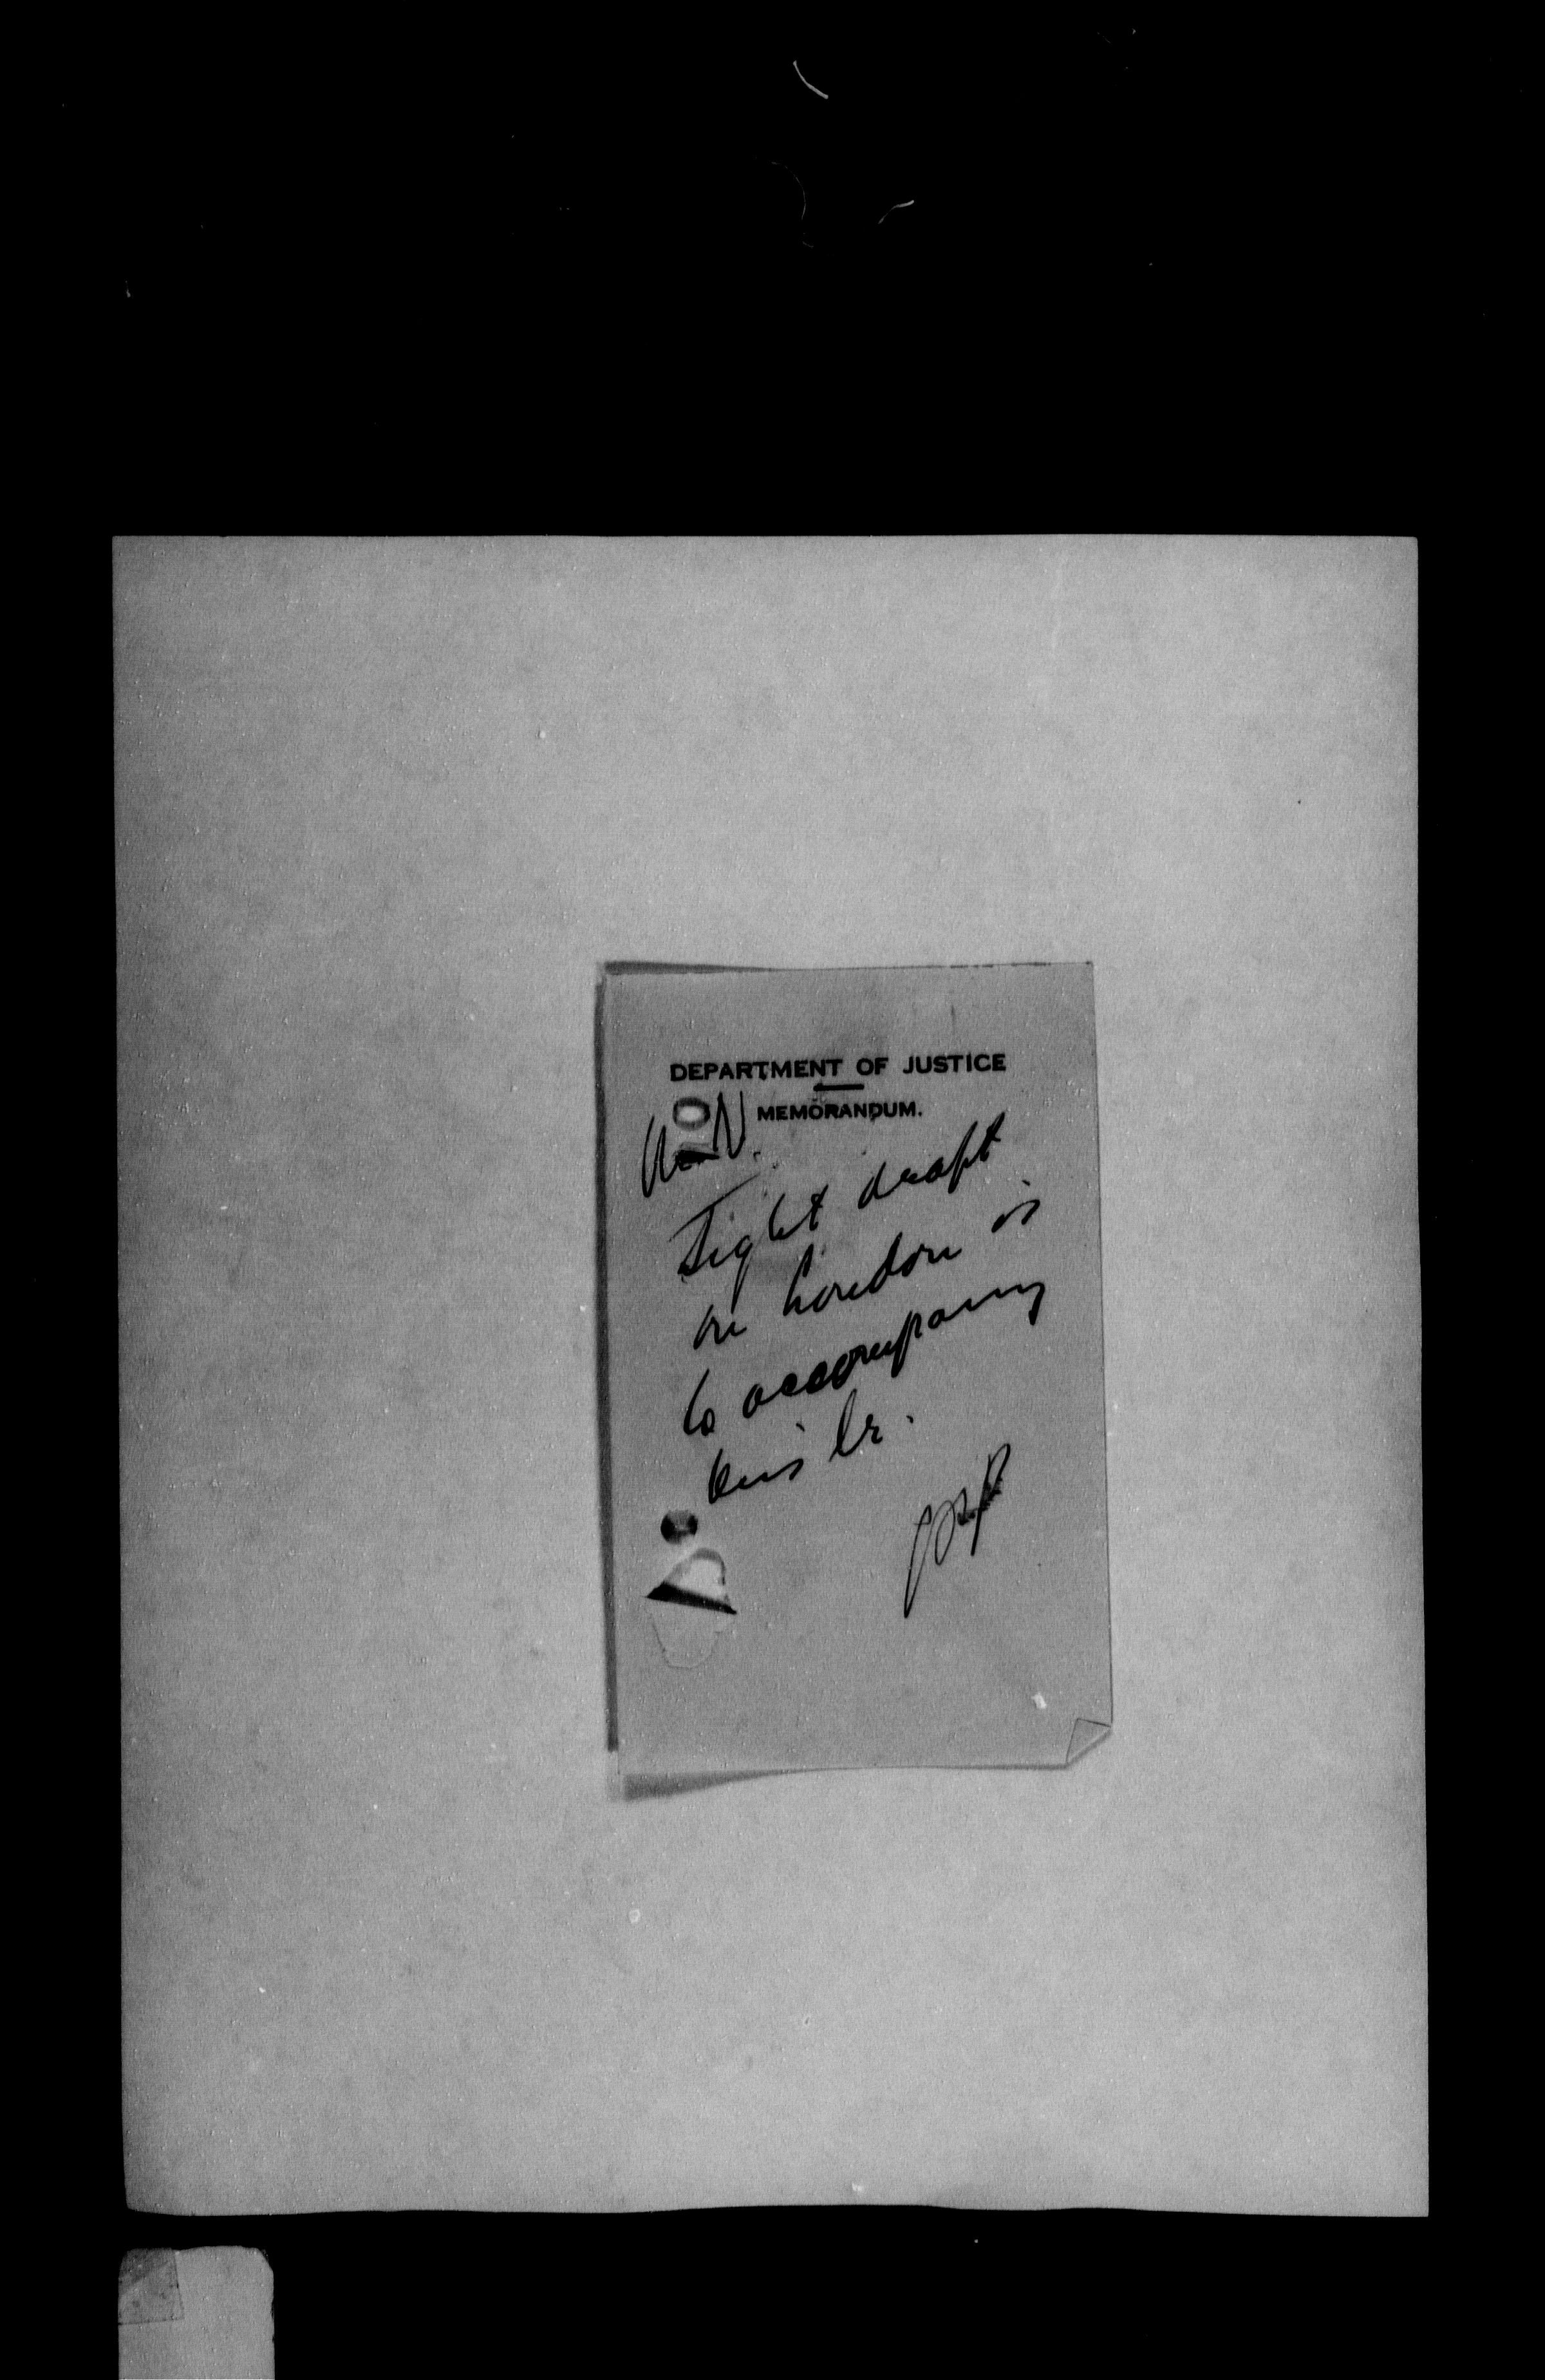 DEPARTMENT OF JUSTICE
MEMORANDUM.
Sight draft
on London is
to accompany
this lr.